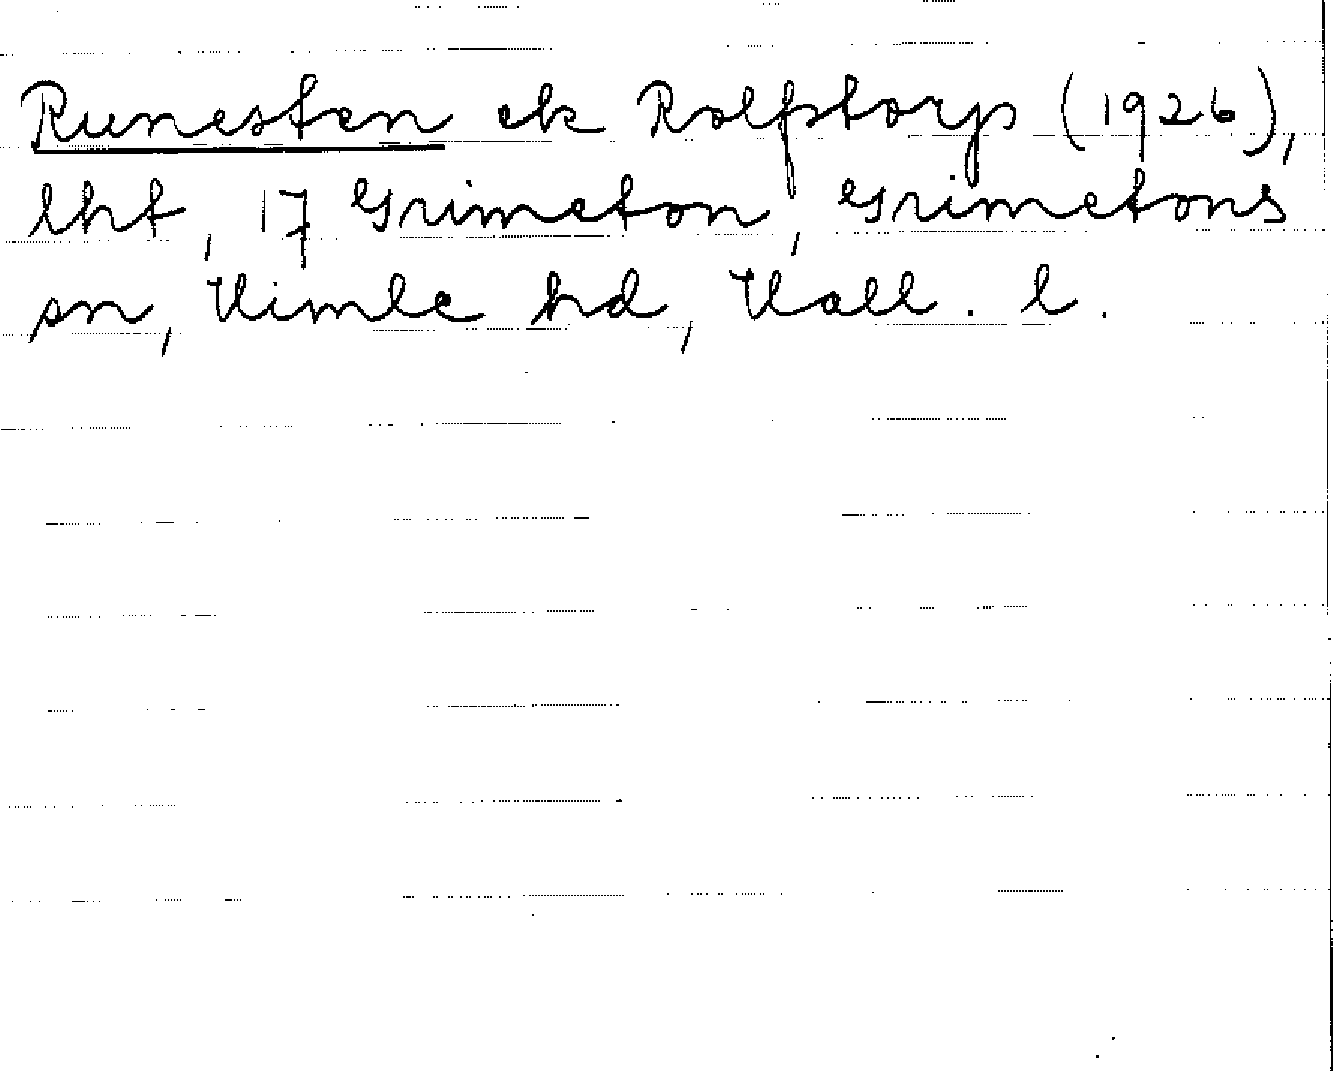 Runesten ek Rolfstorp (1926),
lht, 17 Grimeton, Grimetons
sn, Himle hd, Hall. l.